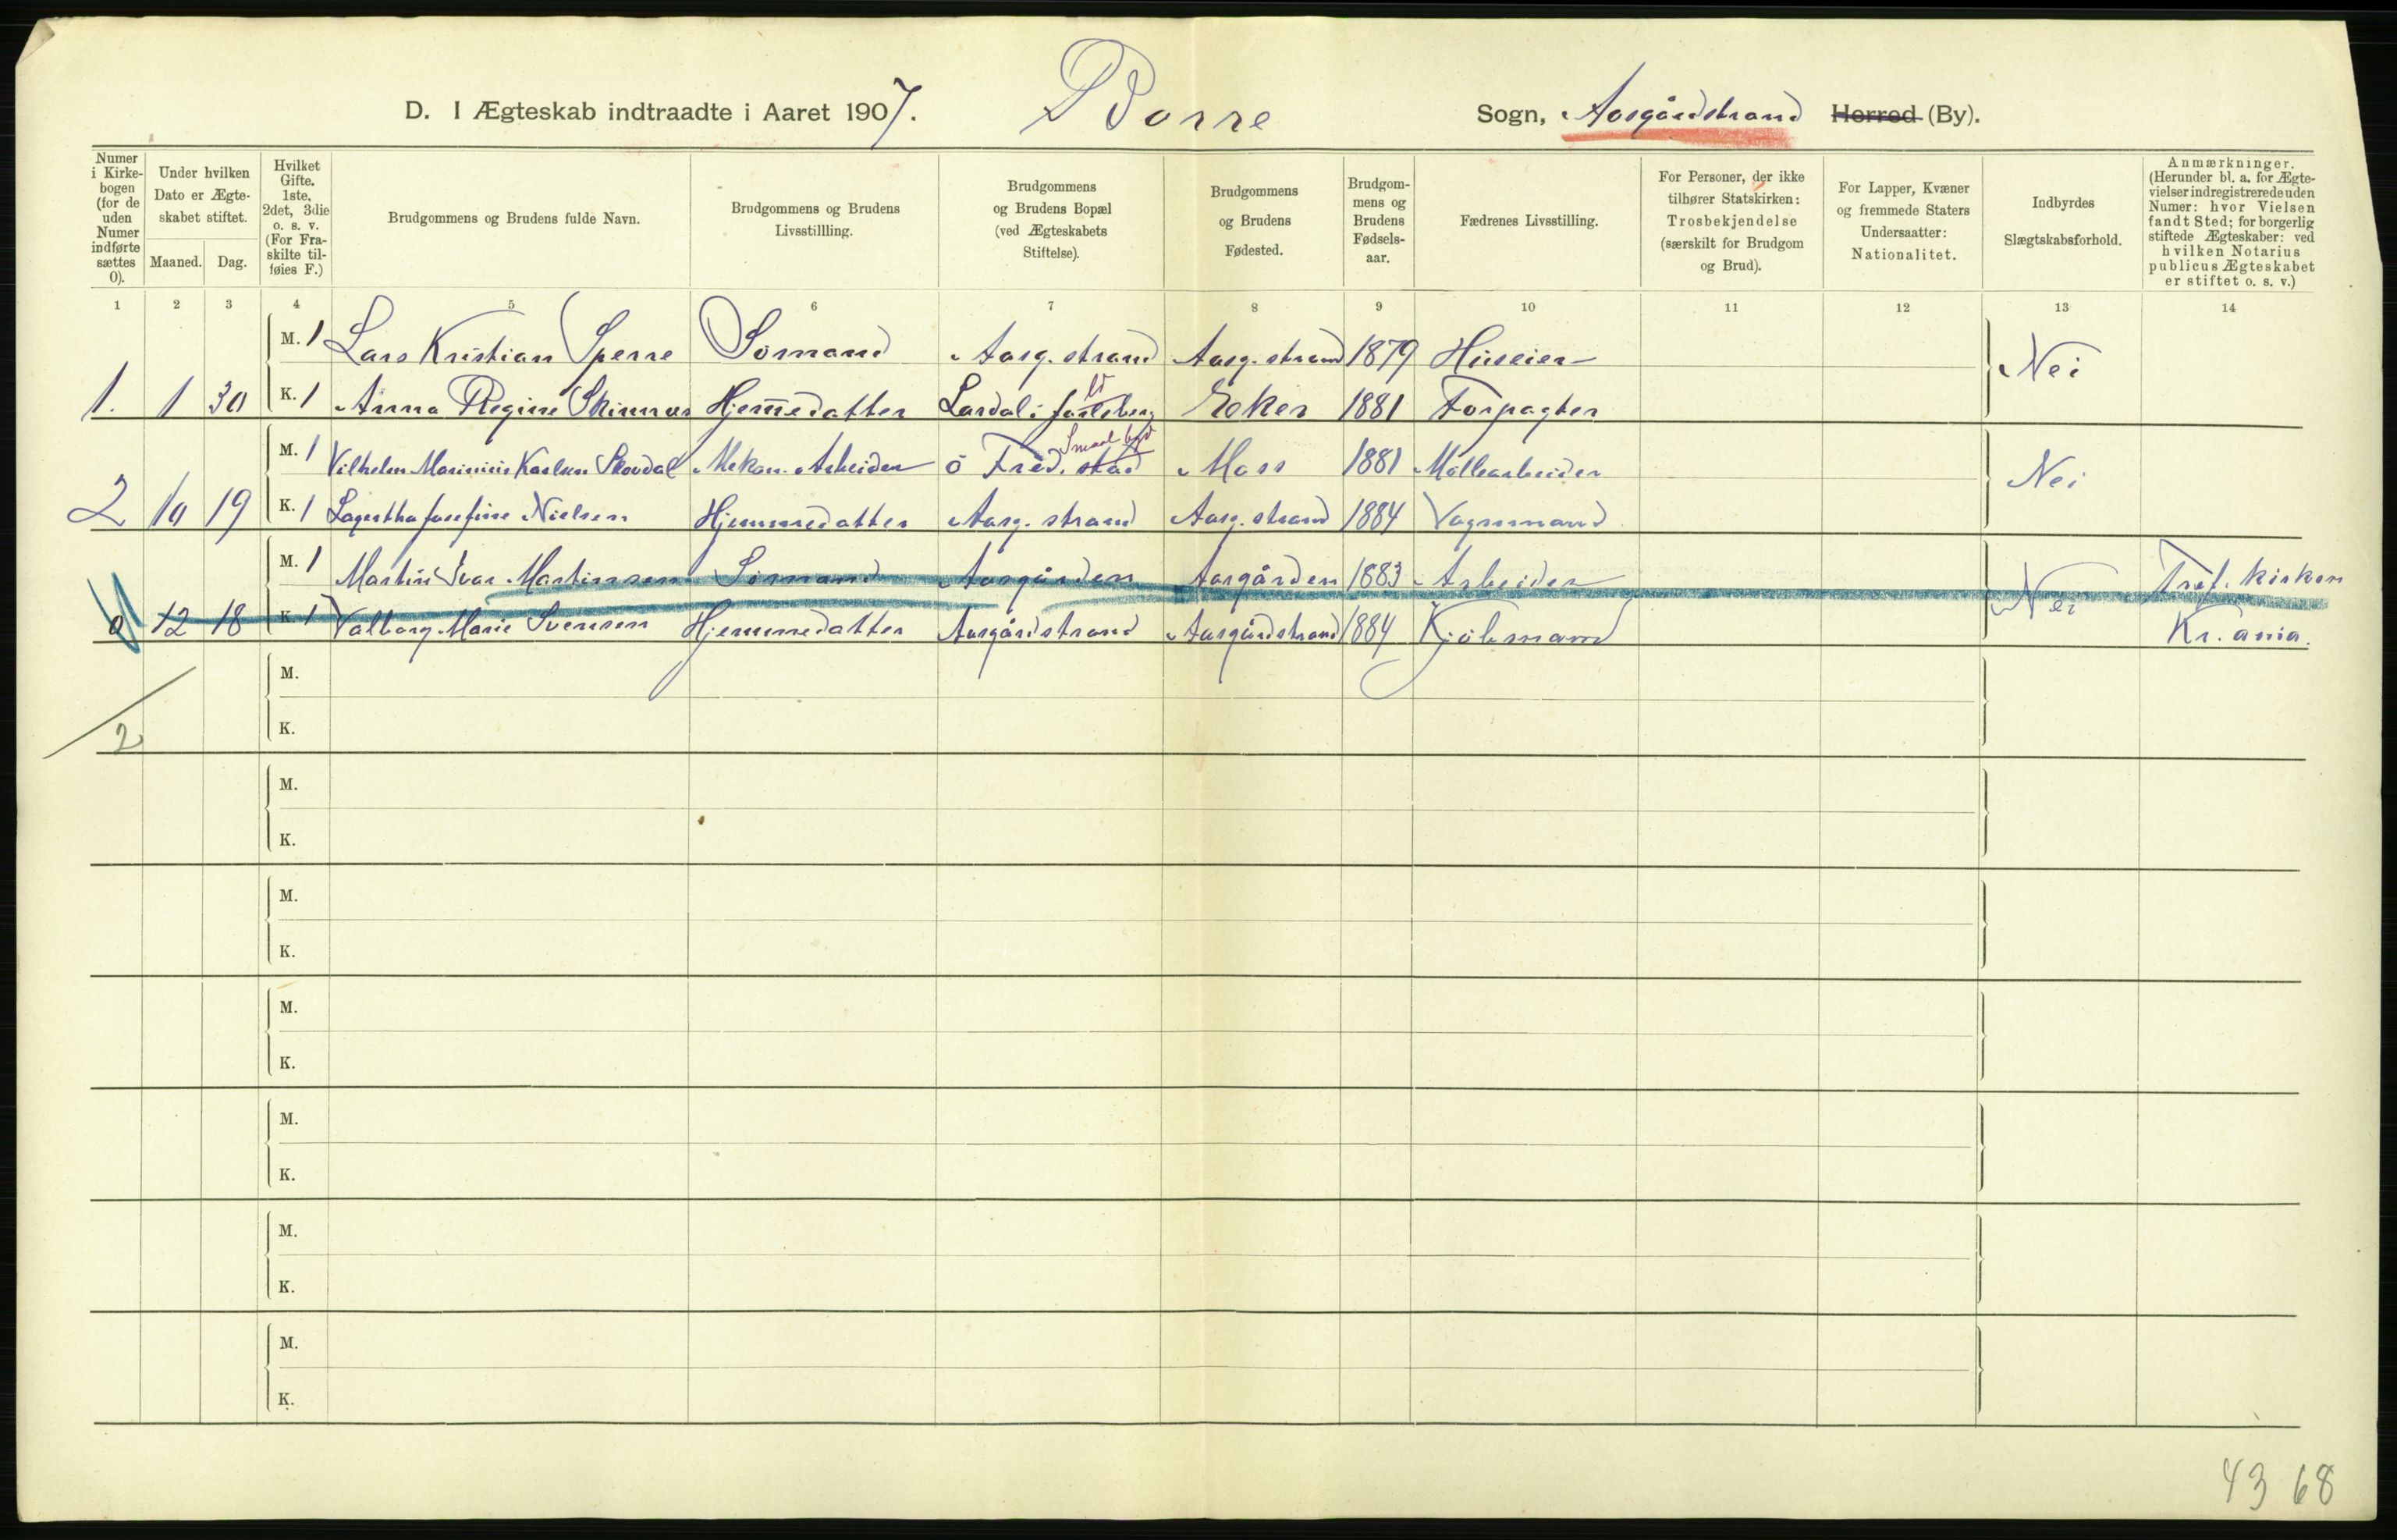 D. I Ægteskab indtraadte i Aaret 1907. Borre Sogn, Aasgårdstrand Herred (By).
Numer i Kirkebogen (for de uden Numer indførte sættes 0).
Under hvilken Dato er Ægteskabet stiftet.
Maaned. Dag.
Hvilket Gifte. 1ste, 2det, 3die o. s. v. (For Fraskilte tilføies F.)
Brudgommens og Brudens fulde Navn.
Brudgommens og Brudens Livsstillling.
Brudgommens og Brudens Bopæl (ved Ægteskabets Stiftelse).
Brudgommens og Brudens Fødested.
Brudgommens og Brudens Fødselsaar.
Fædrenes Livsstilling.
For Personer, der ikke tilhører Statskirken: Trosbekjendelse (særskilt for Brudgom og Brud).
For Lapper, Kvæner og fremmede Staters Undersaatter: Nationalitet.
Indbyrdes Slægtskabsforhold.
Anmærkninger. (Herunder bl. a. for Ægtevielser indregistrerede uden Numer: hvor Vielsen fandt Sted; for borgerlig stiftede Ægteskaber: ved hvilken Notarius publicus Ægteskabet er stiftet o. s. v.)
1 2 3 4 5 6 7 8 9 10 11 12 13 14
M. 1 Lars Kristian Sperre Sömand Aasg. strand Aasg. strand 1879 Huseier Nei
1. 1 30 K. 1 Anna Regine Skinnes Hjem̄edatter Lardal i Jarlsberg Eker 1881 Forpagter
M. 1 Vilhelm Marinius Karlsen Skovdal Mekan. Arbeider ö Fred. stad Smaal. Moss 1881 Möllearbeider Nei
2 10 19 K. 1 Lagertha Josefine Nielsen Hjemmedatter Aasg. strand Aasg. strand 1884 Vognmand
M. 1 Martin Ivar Martinsen Sömand Aasgården Aasgården 1883 Arbeider Nei Tref. kirken
0 12 18 K. 1 Valborg Marie Svensen Hjemmedatter Aasgårdstrand Aasgårdstrand 1884 Kjöbmand Kr.ania.
M.
2 K.
M.
K.
M.
K.
M.
K.
M.
K.
M.
K.
M.
K.
43 68